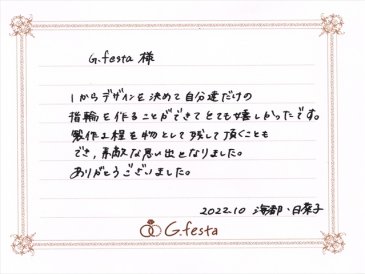 G.festa 様
1からデザインを決めて自分達だけの
指輪を作ることができてとても嬉しかったです。
製作工程を物として残して頂くことも
でき、素敵な思い出となりました。
ありがとうございました。
2022.10 海都・日菜子
G.festa